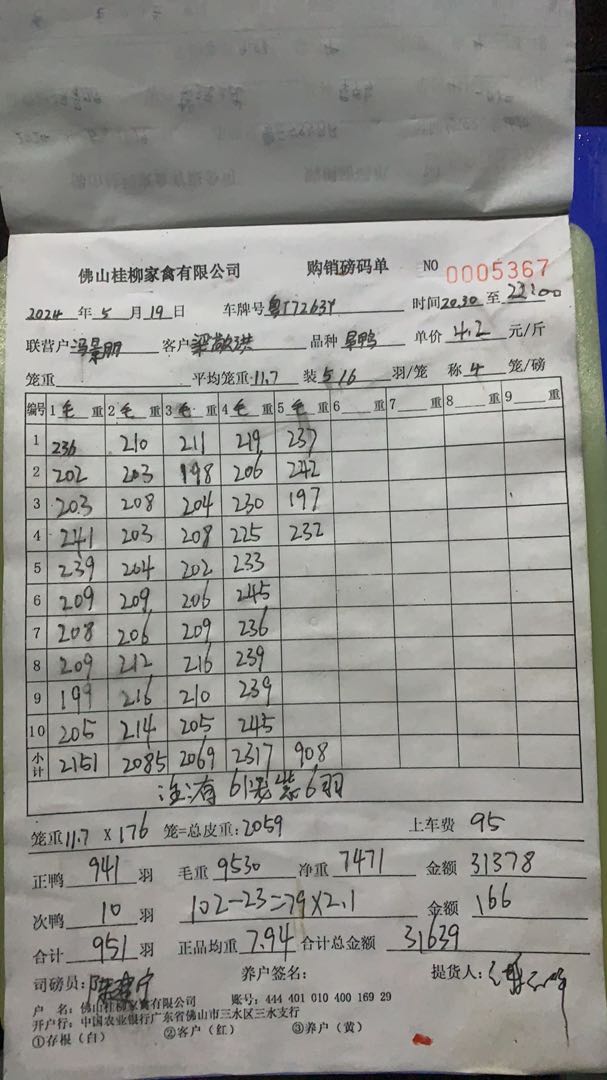 佛山桂柳家禽有限公司 购销磅码单 NO 0005367
2024 年 5 月 19 日 车牌号 粤T72634 时间 20:30 至 22:00
联营户 冯景朋 客户 梁敬洪 品种 旱鸭 单价 4.2 元/斤
笼重 平均笼重 11.7 装 5/6 羽/笼 称 4 笼/磅
编号 1 毛 重 2 毛 重 3 毛 重 4 毛 重 5 毛 重 6 重 7 重 8 重 9 重
1 236 210 211 219 237
2 202 203 198 206 242
3 203 208 204 230 197
4 241 203 208 225 232
5 239 204 202 233
6 209 209 206 245
7 208 206 209 236
8 209 212 216 239
9 199 216 210 239
10 205 214 205 245
小计 2151 2085 2069 2317 908
注:有 61笼装6羽
笼重 11.7 X 176 笼=总皮重: 2059 上车费 95
正鸭 941 羽 毛重 9530 净重 7471 金额 31378
次鸭 10 羽 102-23=79×2.1 金额 166
合计 951 羽 正品均重 7.94 合计总金额 31639
司磅员: 养户签名: 提货人:
户 名: 佛山桂柳家禽有限公司 账号: 444 401 010 400 169 29
开户行: 中国农业银行广东省佛山市三水区三水支行
①存根(白) ②客户(红) ③养户(黄)